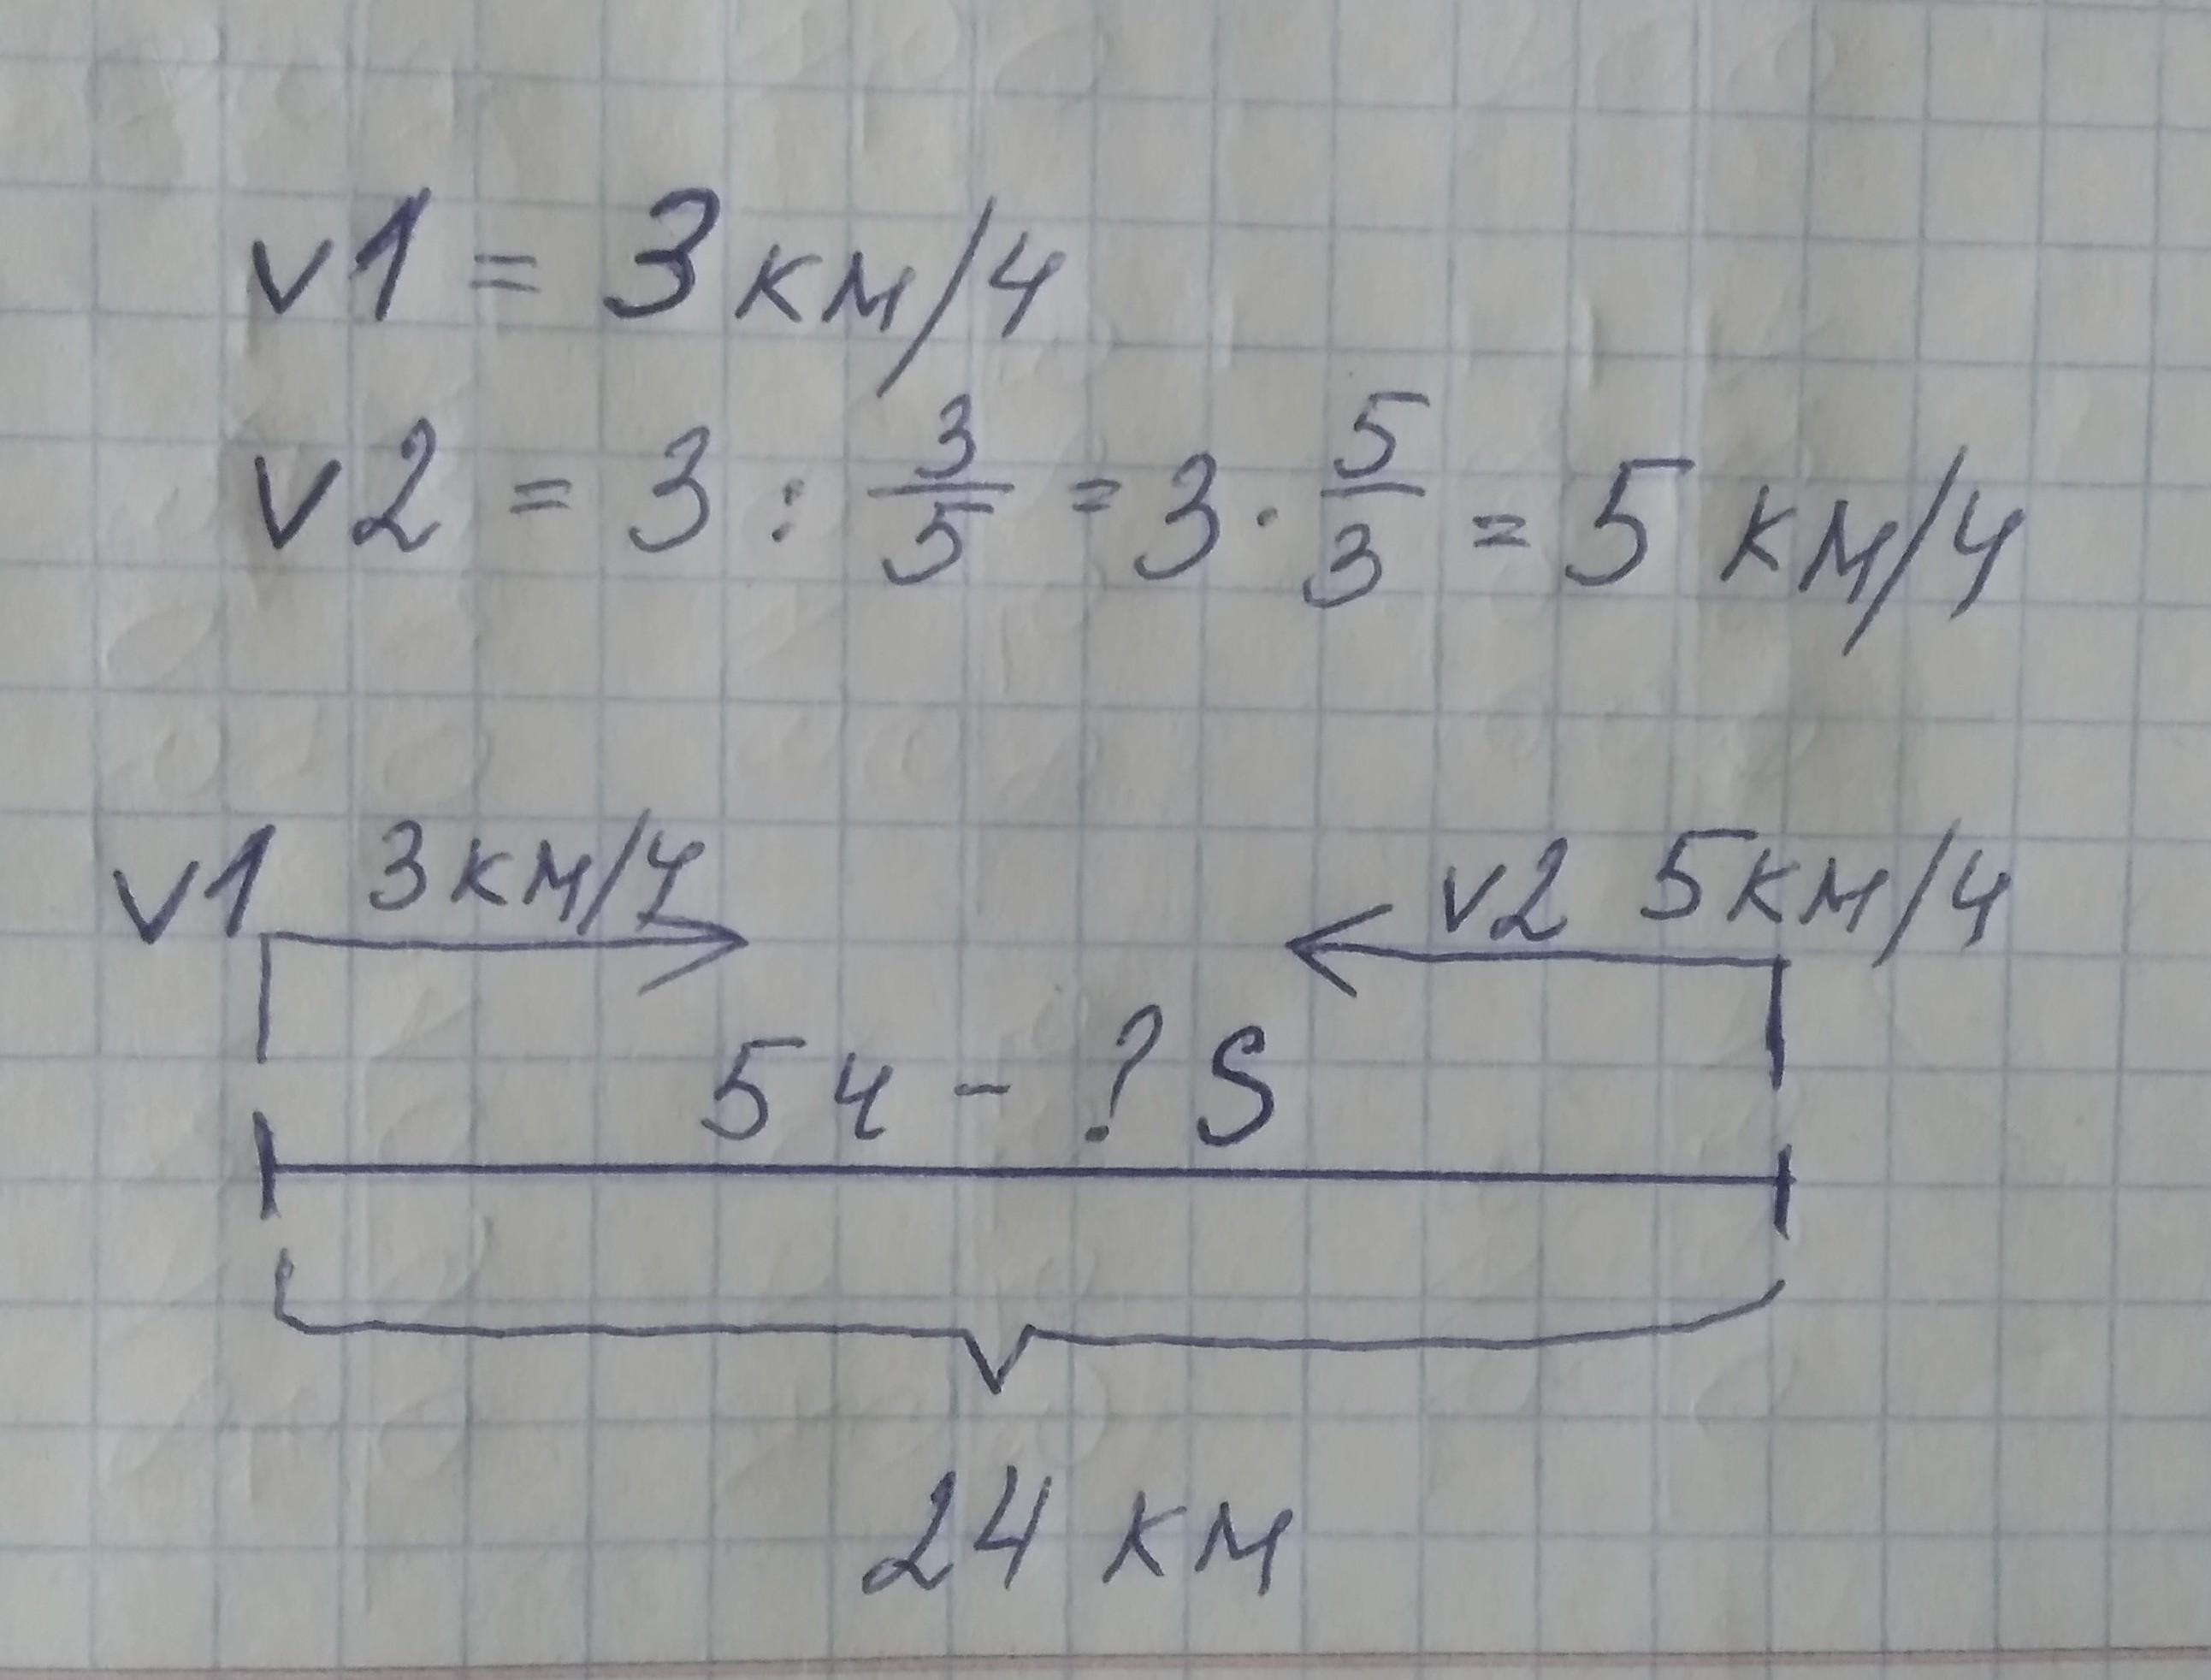 v1 = 3 км/ч
v2 = 3 : 3/5 = 3 · 5/3 = 5 км/ч
v1 3 км/ч v2 5 км/ч
5 ч - ? S
24 км